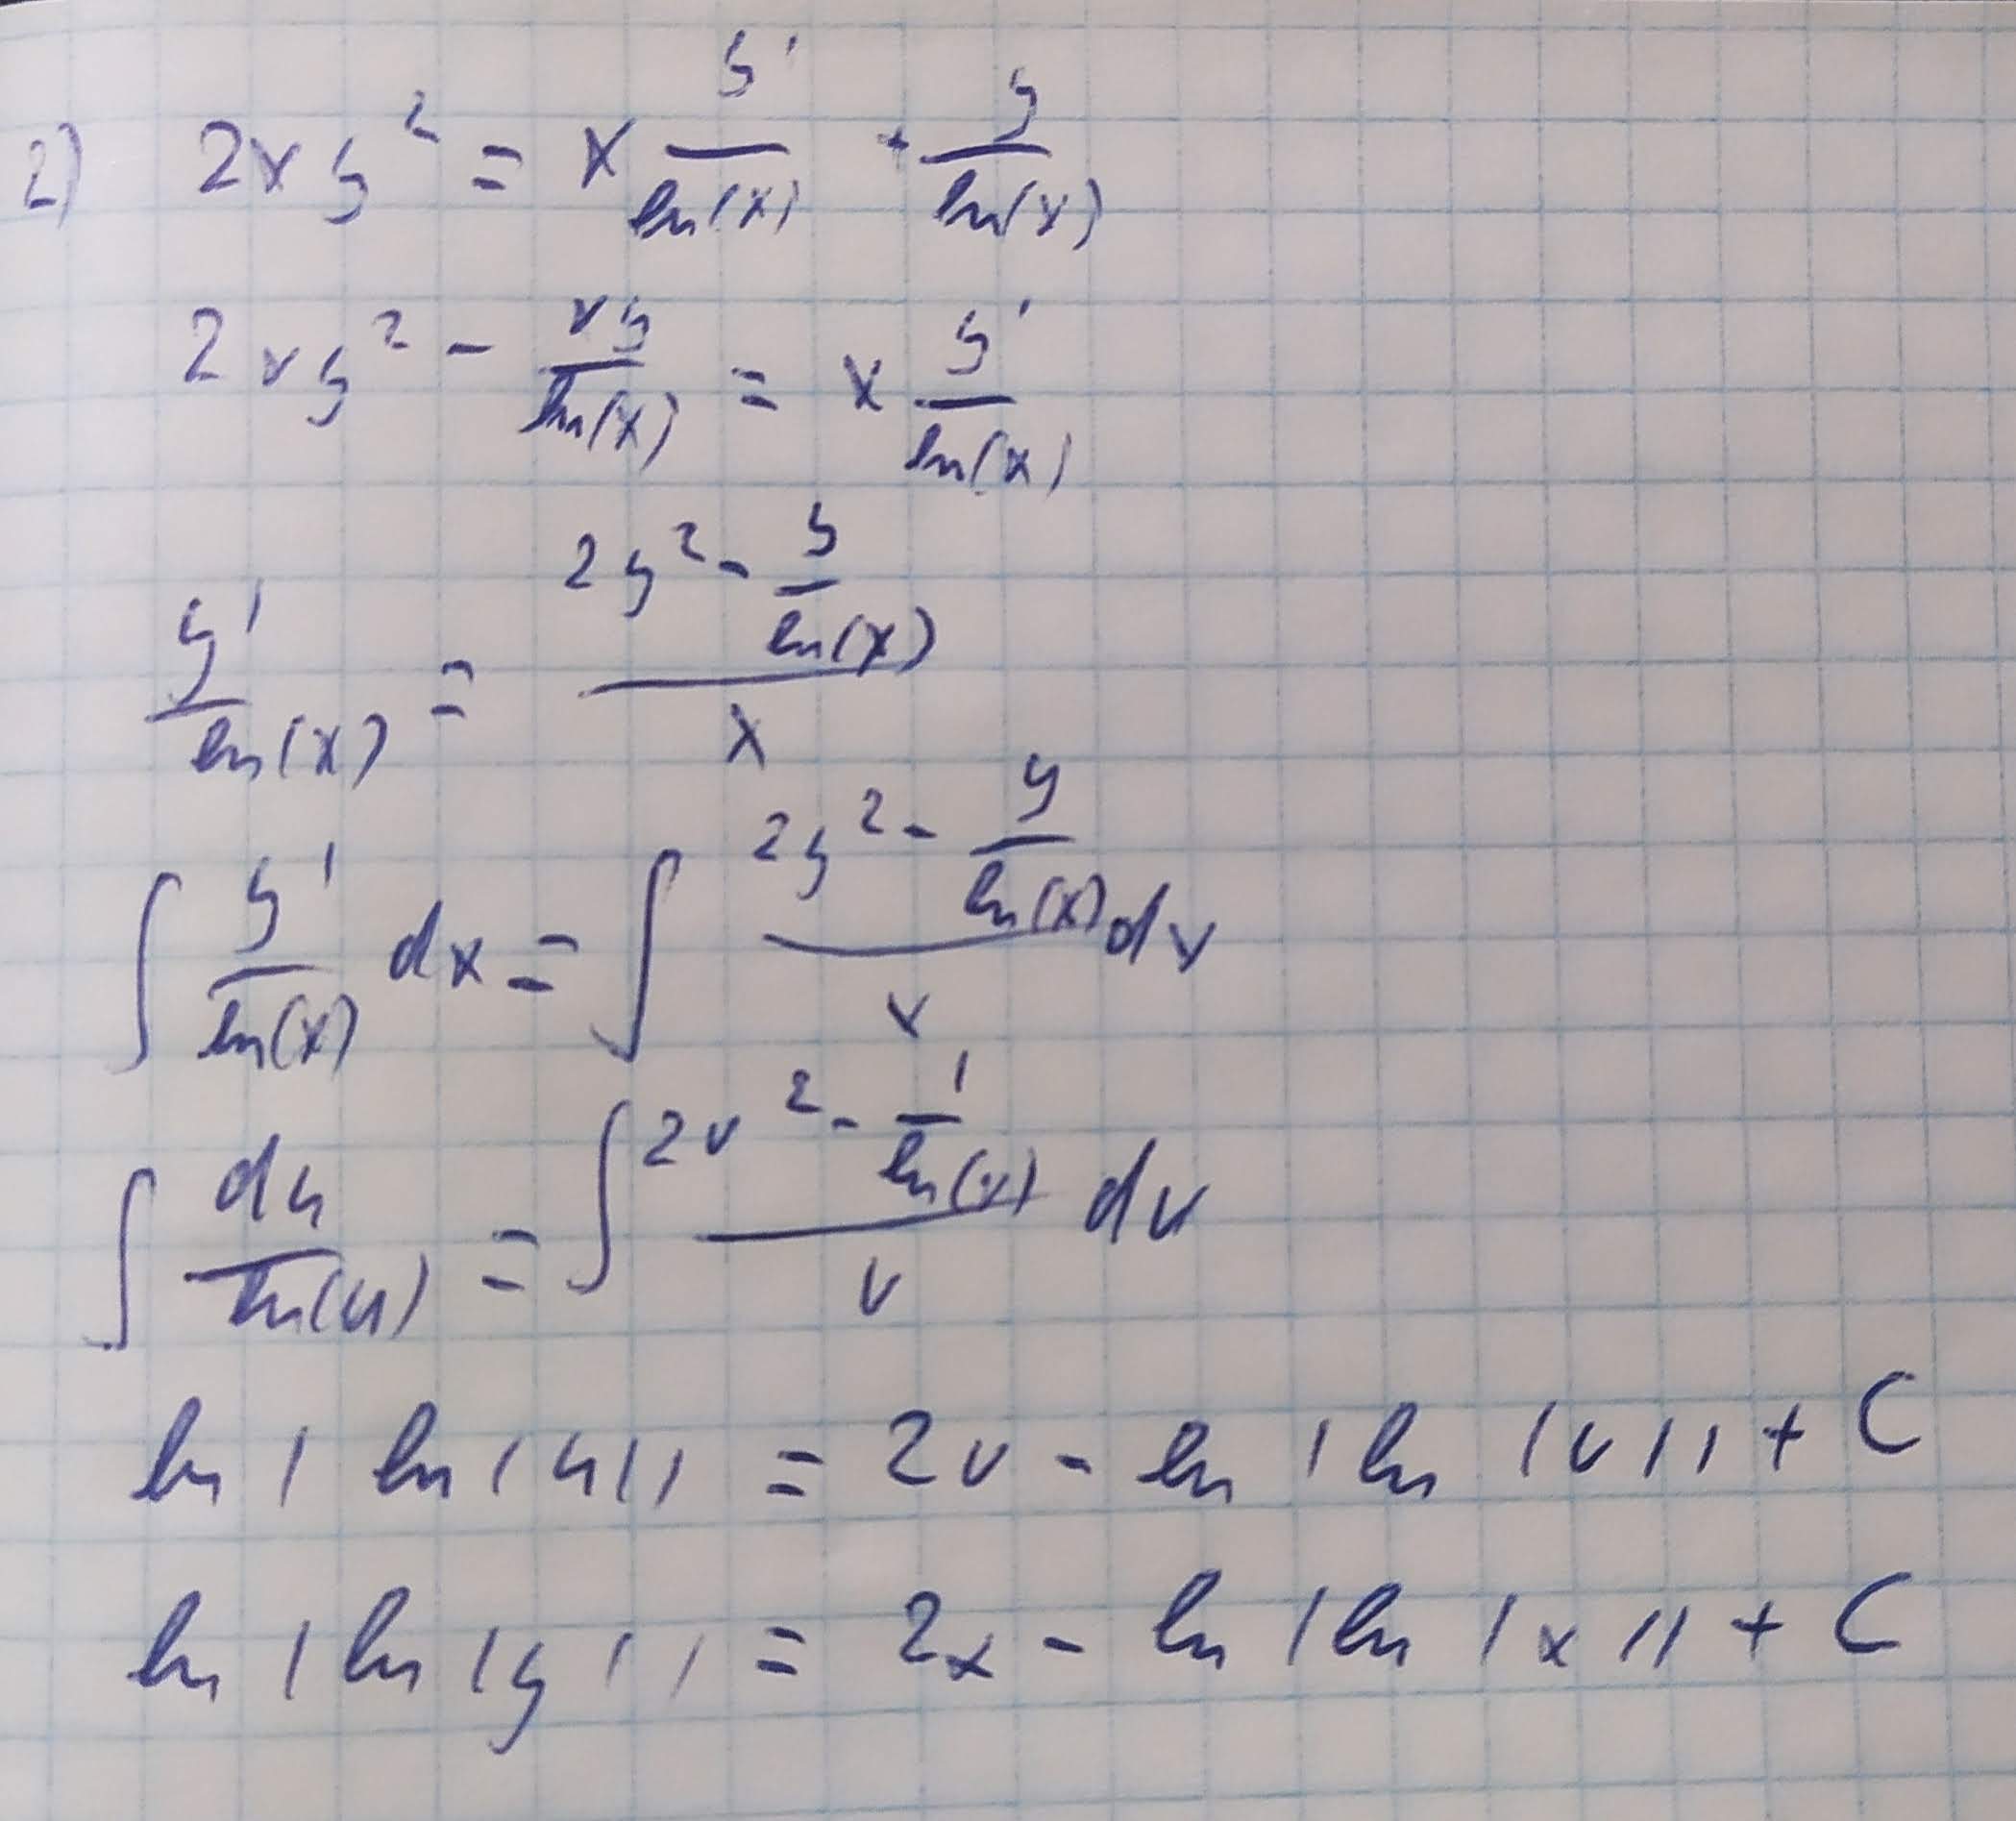 2) 2xy² = x y'/ln(x) + y/ln(x)
2xy² - xy/ln(x) = x y'/ln(x)
y'/ln(x) = (2y² - y/ln(x))/x
∫ y'/ln(x) dx = ∫ (2y² - y/ln(x))/x dx
∫ du/ln(u) = ∫ (2v² - 1/ln(v))/v dv
ln | ln |u|| = 2v - ln | ln |v|| + C
ln | ln |y|| = 2x - ln | ln |x|| + C